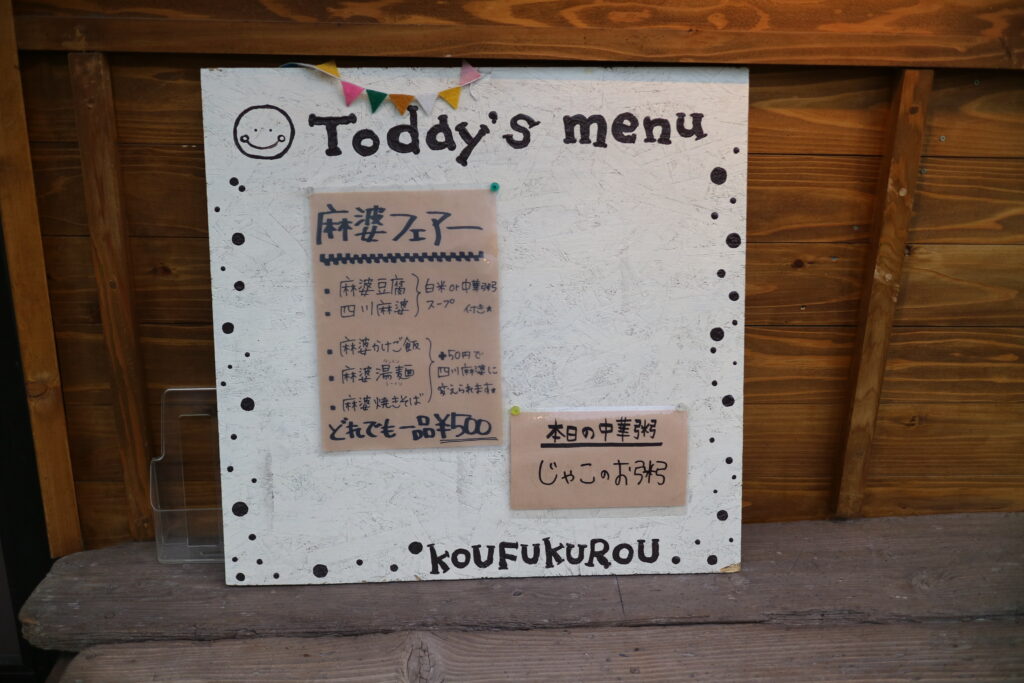 Todday's menu
麻婆フェアー
・麻婆豆腐
・四川麻婆
白米or中華粥
スープ 付き★
・麻婆かけご飯
・麻婆湯麺
・麻婆焼きそば
+50円で
四川麻婆に
変えられます★
どれでも一品¥500
本日の中華粥
じゃこのお粥
KOUFUKUROU